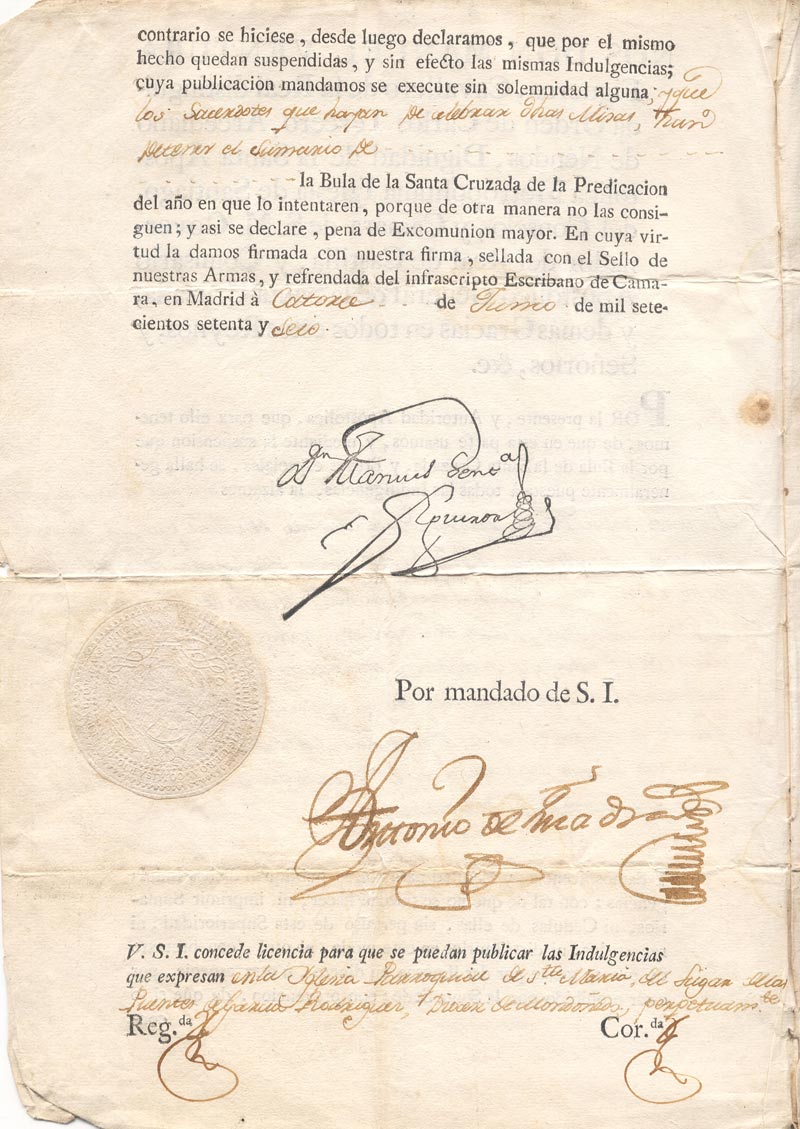 contrario se hiciese, desde luego declaramos, que por el mismo
hecho quedan suspendidas, y sin efecto las mismas Indulgencias;
cuya publicacion mandamos se execute sin solemnidad alguna; y que
los Sacerdotes que hayan de celebrar dhas Misas,
de tener el Sumario de
la Bula de la Santa Cruzada de la Predicacion
del año en que lo intentaren, porque de otra manera no las consi-
guen; y asi se declare, pena de Excomunion mayor. En cuya vir-
tud la damos firmada con nuestra firma, sellada con el Sello de
nuestras Armas, y refrendada del infrascripto Escribano de Cama-
ra, en Madrid à Catorce de Junio de mil sete-
cientos setenta y Seis.
Dn Manuel Vent.a
Figueroa
Por mandado de S. I.
Antonio de
V. S. I. concede licencia para que se puedan publicar las Indulgencias
que expresan en la Iglesia Parroquial de Sta Maria, del Lugar de las
Puentes de Garcia Rodriguez, Dioc. de Mondoñedo, perpetuam.te
Reg.da
Cor.da